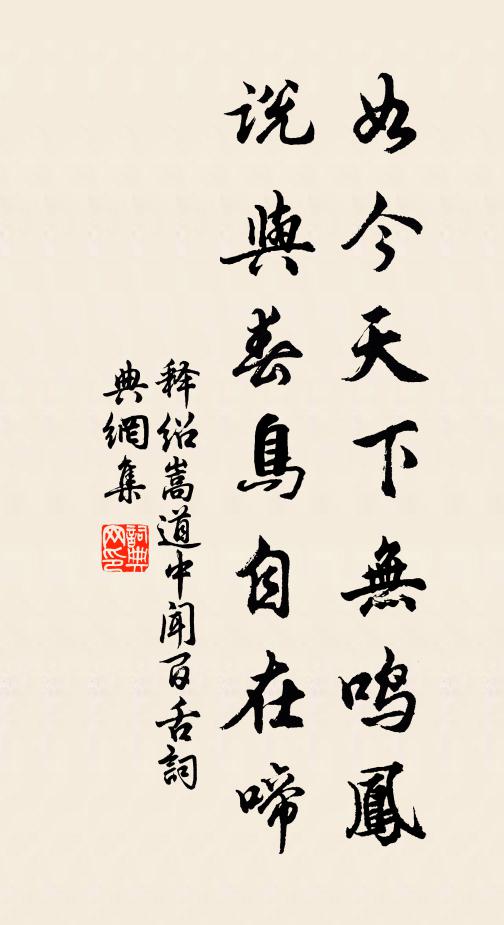 如今天下無鳴鳳
說與春鳥自在啼
释紹嵩道中聞百舌詞
典網集
詞典
网印